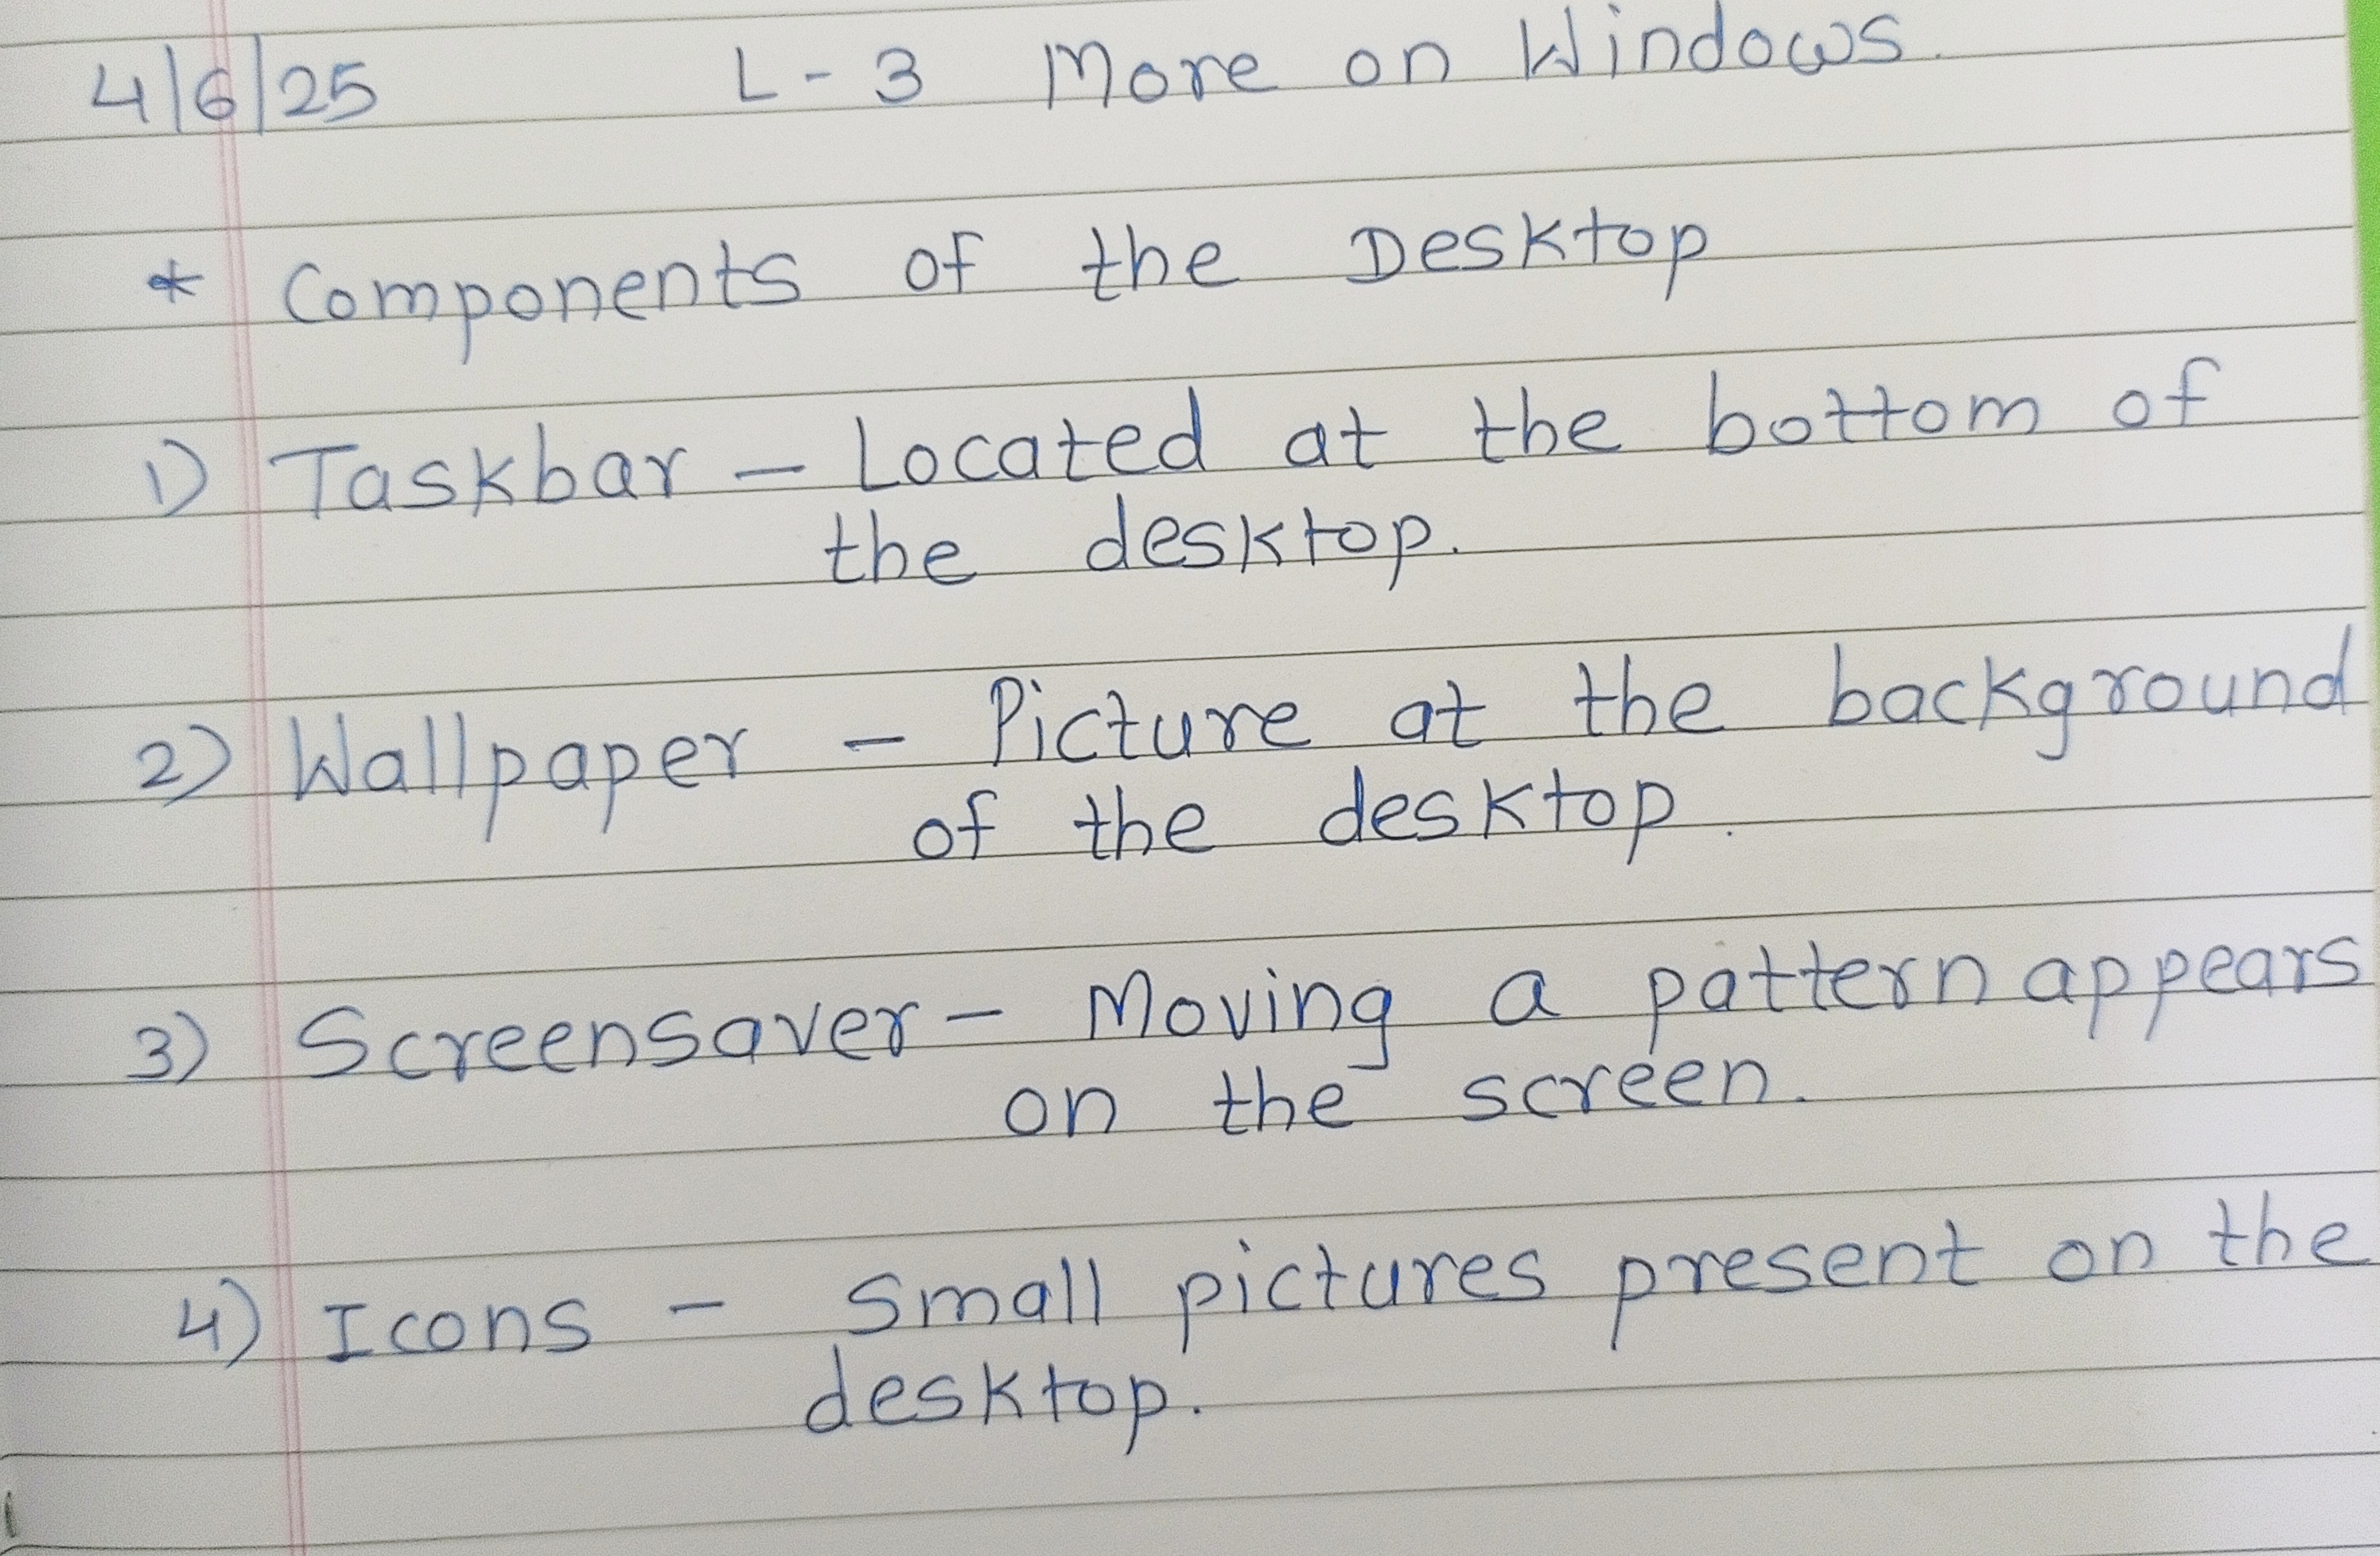 4/6/25 L-3 More on Windows.
* Components of the Desktop
1) Taskbar - Located at the bottom of
the desktop.
2) Wallpaper - Picture at the background
of the desktop.
3) Screensaver - Moving a pattern appears
on the screen.
4) Icons - Small pictures present on the
desktop.